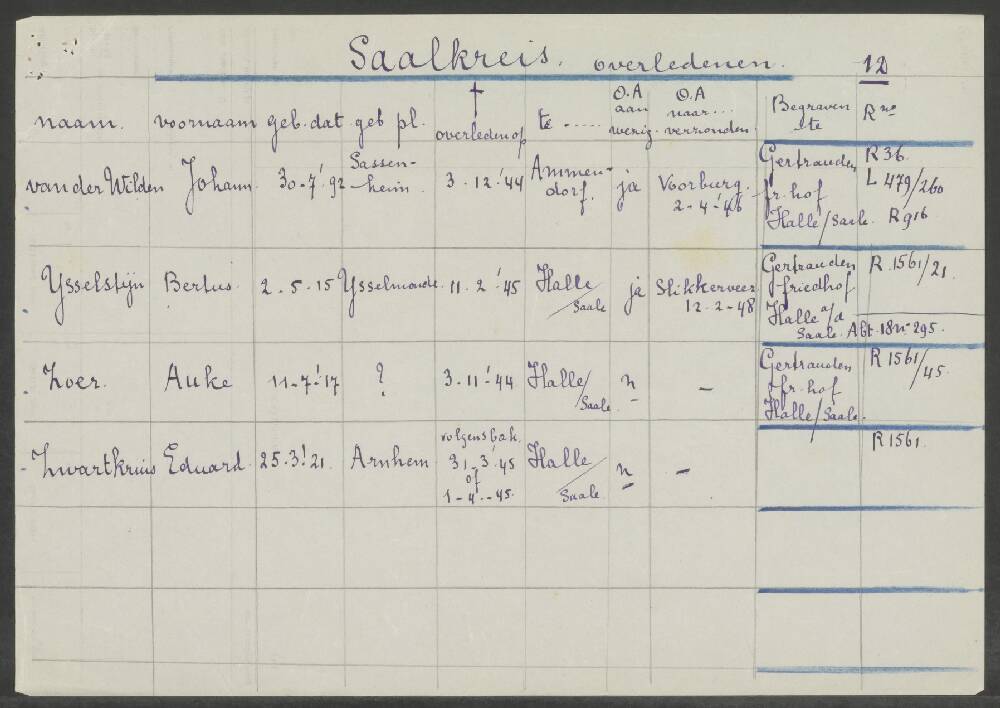 Saalkreis. overledenen. 12
naam. voornaam geb. dat. geb pl. † overleden op te ...... O.A aan wezig. O.A naar... verzonden. Begraven te R no
van der Wilden Johann. 30-7-'92 Sassen-heim. 3-12-'44 Ammen-dorf. ja Voorburg. 2-4-'46 Gertrauden fr. hof Halle/Saale. R 36. L 479/260 R 916
Ysselstijn Bertus. 2-5-15 Ysselmonde. 11-2-'45 Halle/Saale ja Slikkerveer 12-2-48 Gertrauden friedhof Halle a/d Saale. Abt. 18 no 295. R. 1561/21.
Zoer. Auke 11-7-'17 ? 3-11-'44 Halle/Saale. n - Gertrauden fr. hof Halle/Saale. R 1561/45.
Zwartkruis Eduard. 25.3.'21. Arnhem. volgens bak. 31-3-'45 of 1-4-'45. Halle/Saale. n - R 1561.